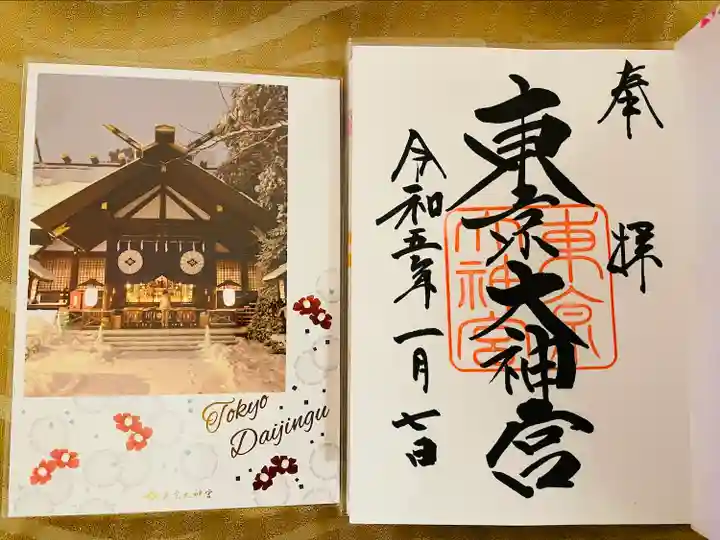 Tokyo
Daijingu
東京大神宮
奉拝
東京大神宮
東京大神宮
令和五年一月七日